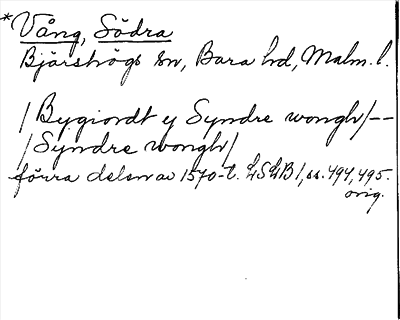 *Vång, Södra
Bjärshögs sn, Bara hd, Malm. l.
/Bygiordt y Syndre wongh/--
/Syndre wongh/
förra delen av 1570-t. LSLB I, ss. 494, 495.
orig.